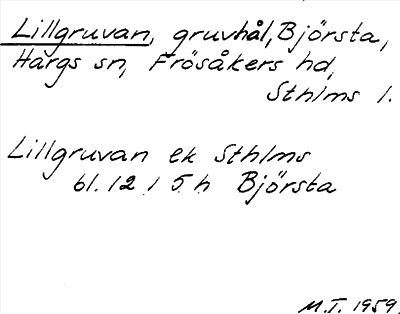 Lillgruvan, gruvhål, Björsta,
Hargs sn, Frösåkers hd,
Sthlms l.
Lillgruvan ek Sthlms
bl. 12 1 5 h Björsta
M.T. 1959.